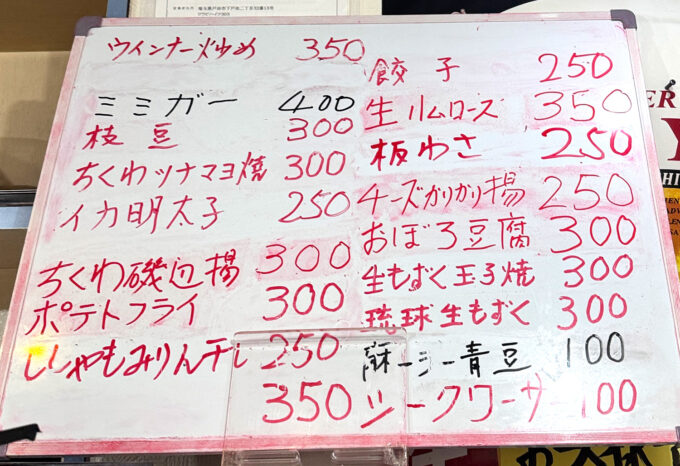 ウインナー炒め 350
ミミガー 400
枝豆 300
ちくわツナマヨ焼 300
イカ明太子 250
ちくわ磯辺揚 300
ポテトフライ 300
ししゃもみりん干し 250
350
餃子 250
生ハムロース 350
板わさ 250
チーズかりかり揚 250
おぼろ豆腐 300
生もずく玉子焼 300
琉球生もずく 300
ーシー青豆 100
シークワーサー 100